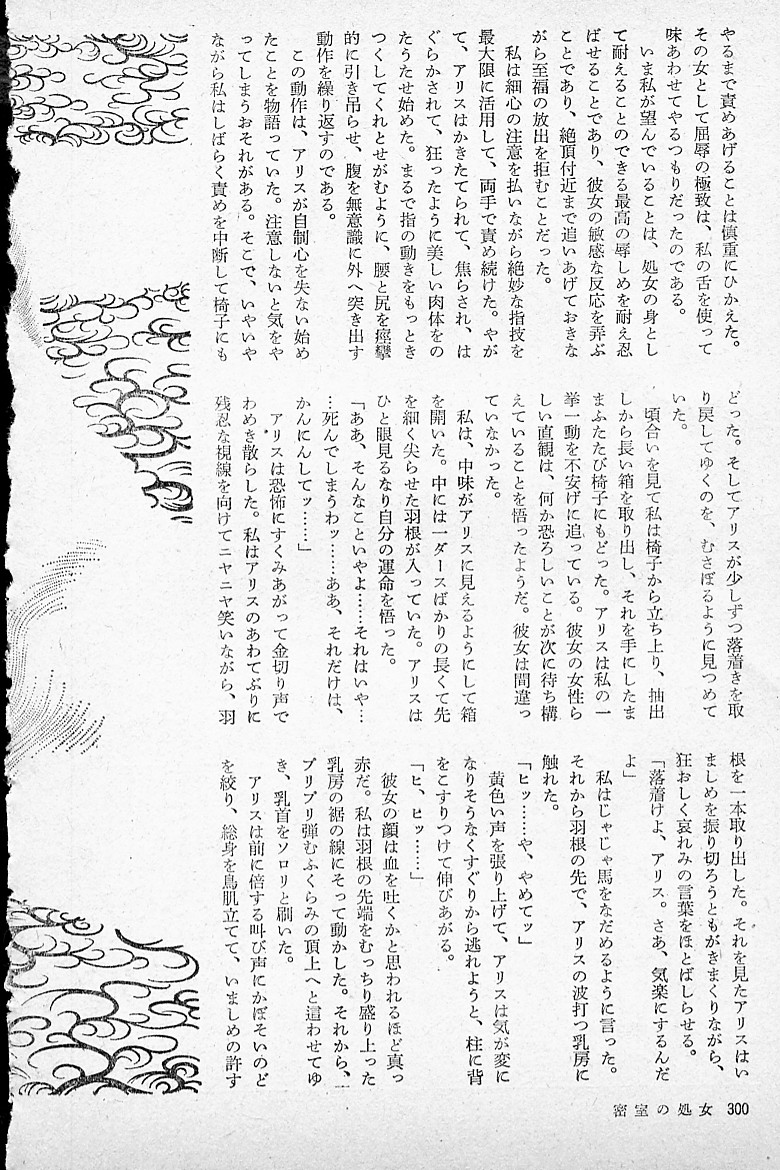 やるまで責めあげることは慎重にひかえた。
その女として屈辱の極致は、私の舌を使って
味あわせてやるつもりだったのである。
いま私が望んでいることは、処女の身とし
て耐えることのできる最高の辱しめを耐え忍
ばせることであり、彼女の敏感な反応を弄ぶ
ことであり、絶頂付近まで追いあげておきな
がら至福の放出を拒むことだった。
私は細心の注意を払いながら絶妙な指技を
最大限に活用して、両手で責め続けた。やが
て、アリスはかきたてられて、焦らされ、は
ぐらかされて、狂ったように美しい肉体をの
たうたせ始めた。まるで指の動きをもっとき
つくしてくれとせがむように、腰と尻を痙攣
的に引き吊らせ、腹を無意識に外へ突き出す
動作を繰り返すのである。
この動作は、アリスが自制心を失ない始め
たことを物語っていた。注意しないと気をや
ってしまうおそれがある。そこで、いやいや
ながら私はしばらく責めを中断して椅子にも
どった。そしてアリスが少しずつ落着きを取
り戻してゆくのを、むさぼるように見つめて
いた。
頃合いを見て私は椅子から立ち上り、抽出
しから長い箱を取り出し、それを手にしたま
まふたたび椅子にもどった。アリスは私の一
挙一動を不安げに追っている。彼女の女性ら
しい直観は、何か恐ろしいことが次に待ち構
えていることを悟ったようだ。彼女は間違っ
ていなかった。
私は、中味がアリスに見えるようにして箱
を開いた。中には一ダースばかりの長くて先
を細く尖らせた羽根が入っていた。アリスは
ひと眼見るなり自分の運命を悟った。
「ああ、そんなこといやよ……それはいや…
…死んでしまうわッ……ああ、それだけは、
かんにんしてッ……」
アリスは恐怖にすくみあがって金切り声で
わめき散らした。私はアリスのあわてぶりに
残忍な視線を向けてニヤニヤ笑いながら、羽
根を一本取り出した。それを見たアリスはい
ましめを振り切ろうともがきまくりながら、
狂おしく哀れみの言葉をほとばしらせる。
「落着けよ、アリス。さあ、気楽にするんだ
よ」
私はじゃじゃ馬をなだめるように言った。
それから羽根の先で、アリスの波打つ乳房に
触れた。
「ヒッ……や、やめてッ」
黄色い声を張り上げて、アリスは気が変に
なりそうなくすぐりから逃れようと、柱に背
をこすりつけて伸びあがる。
「ヒ、ヒッ……」
彼女の顔は血を吐くかと思われるほど真っ
赤だ。私は羽根の先端をむっちり盛り上った
乳房の裾の線にそって動かした。それから、
プリプリ弾むふくらみの頂上へと這わせてゆ
き、乳首をソロリと刷いた。
アリスは前に倍する叫び声にかぼそいのど
を絞り、総身を鳥肌立てて、いましめの許す
密室の処女 300